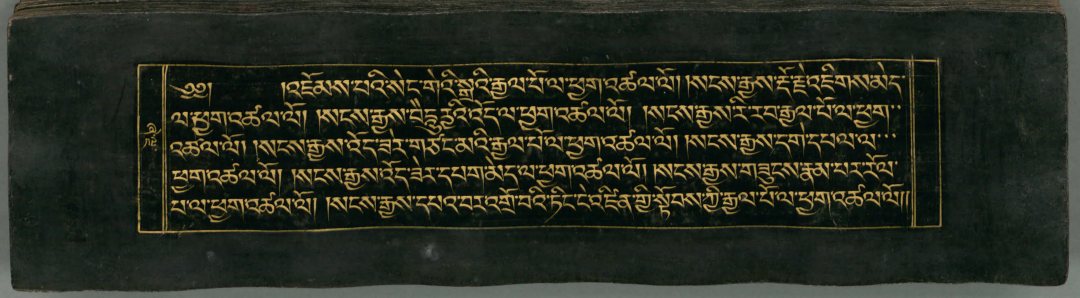 ༄༅། །འཇོམས་པའི་སེང་གེའི་སྒྲའི་རྒྱལ་པོ་ལ་ཕྱག་འཚལ་ལོ། །སངས་རྒྱས་རྡོ་རྗེ་འཇིགས་མེད་
ལ་ཕྱག་འཚལ་ལོ། །སངས་རྒྱས་བཻཌཱུརྻའི་འོད་ལ་ཕྱག་འཚལ་ལོ། །སངས་རྒྱས་རི་རབ་རྒྱལ་པོ་ལ་ཕྱག་
འཚལ་ལོ། །སངས་རྒྱས་འོད་ཟེར་གཙོང་མའི་རྒྱལ་པོ་ལ་ཕྱག་འཚལ་ལོ། །སངས་རྒྱས་དགེ་དཔལ་ལ་
ཕྱག་འཚལ་ལོ། །སངས་རྒྱས་འོད་ཟེར་དཔག་མེད་ལ་ཕྱག་འཚལ་ལོ། །སངས་རྒྱས་གཟུངས་རྣམ་པར་རོལ་
པ་ལ་ཕྱག་འཚལ་ལོ། །སངས་རྒྱས་དཔའ་བར་འགྲོ་བའི་ཏིང་ངེ་འཛིན་གྱི་སྟོབས་ཀྱི་རྒྱལ་པོ་ལ་ཕྱག་འཚལ་ལོ།།